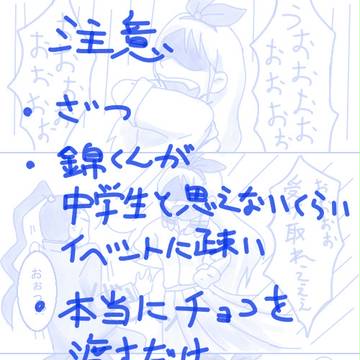 うおおおお
おおおおお
おおおおお
注意
・ざつ
・錦くんが
中学生と思えないくらい
イベントに疎い
・本当にチョコを
渡すだけ
受け取れえええ
おおっ